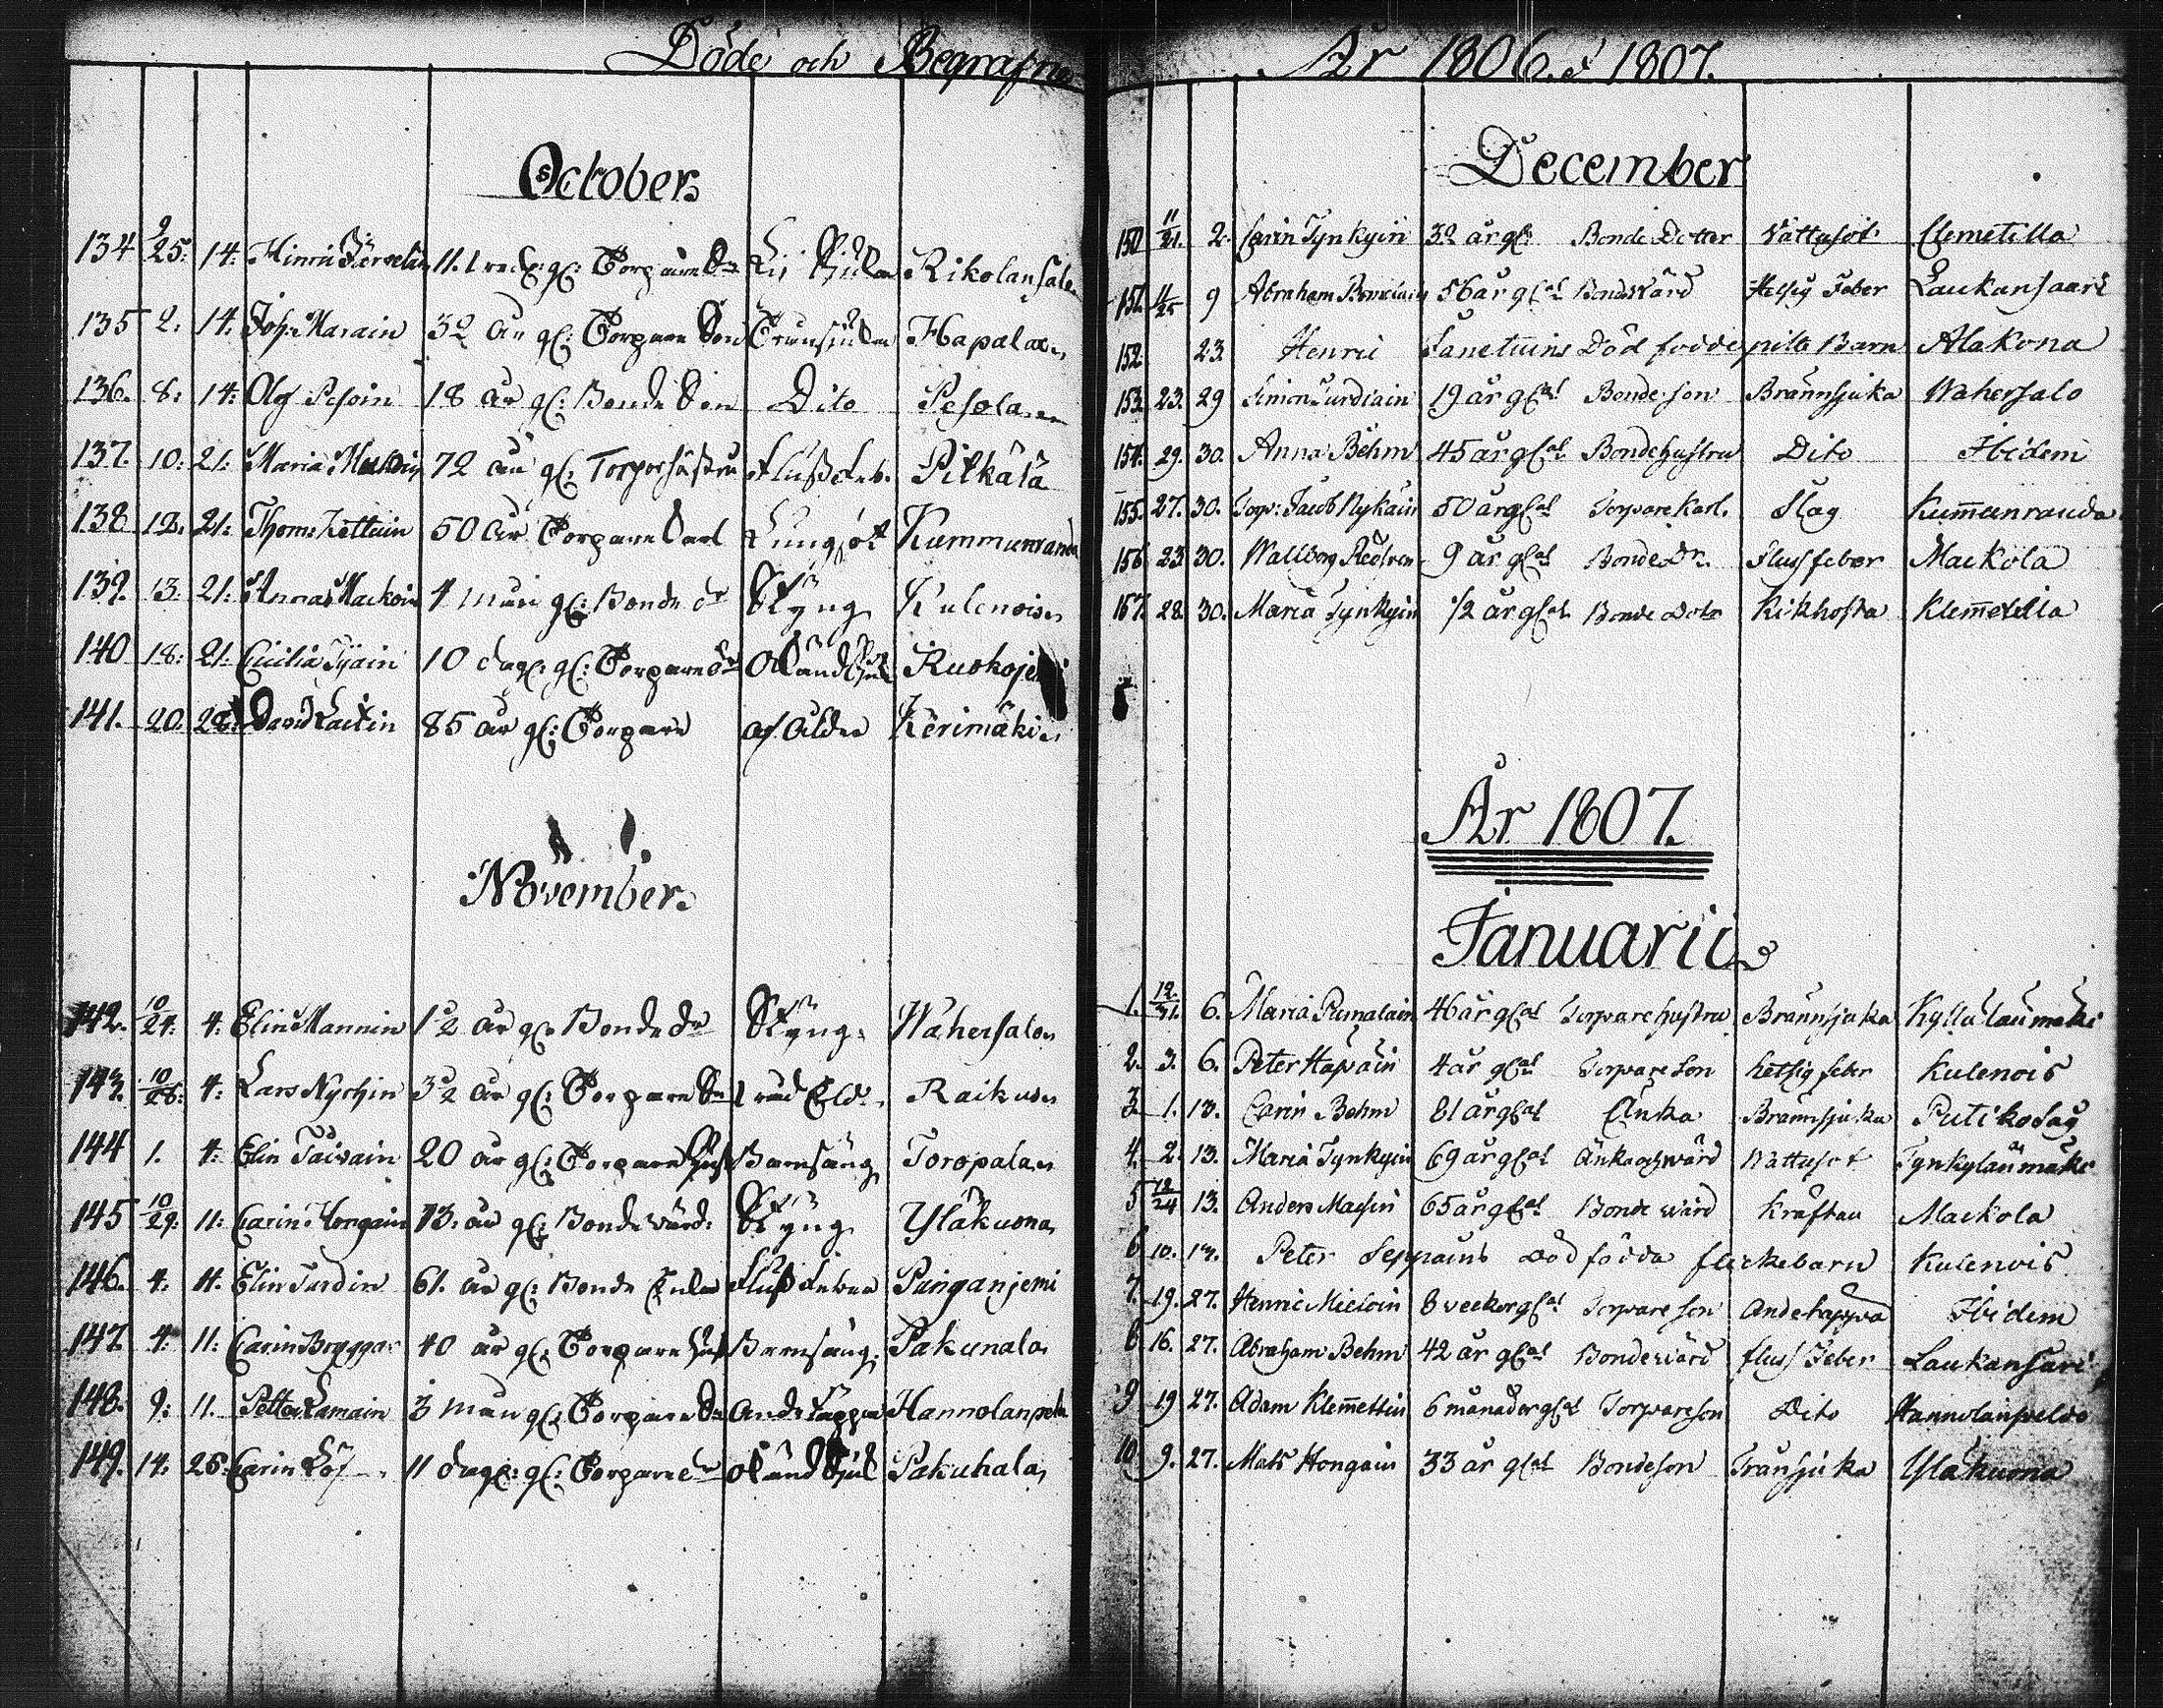 Döde och Begrafne
October.
134 9/25: 14: Hinric 11. gl: Torpare Sn Rikolansalo
135 2: 14: Joh: Marain 32 år gl: Torpare Son Hapala
136. 8: 14: Olof Pesoin 18 år gl: Bonde Son Dito Pesola
137. 10: 21: Maria 72 år gl: Torparhustru Flussfeb. Pitkälä
138 12: 21: Thom: Kettuin 50 år Torpare Karl Lungsot Kummunranda
139. 13: 21: Anna Mackoin 4 mån gl: Bonde dr Styng Kulenois
140 18: 21: Cicilia Tyäin 10 dag: gl: Torpare dr Okänd Sjuk Ruokojemi
141. 20. David Lattin 85 år gl: Torpare af Ålder Kerimäki
November.
142. 10/24: 4: Elin Mannin 1 1/2 år gl: Bonde dr Styng Wahersalo
143. 10/28: 4: Lars Nychin 3 1/2 år gl: Torpare Sn Raikuu
144 1. 4: Elin Taivain 20 år gl: Torpare Hust Barnsäng Toropala
145 10/29: 11: Carin Hongain 73. år gl: Bonde Wärd: Styng Yläkuona
146. 4: 11: Elin Turdin 61. år gl: Bonde Enka Fluss Feber Pänganjemi
147. 4: 11: Carin Bryggar 40 år gl: Torpare Hust Barnsäng: Pakunala
148. 9: 11. Petter Lamain 3 mån gl: Torpare Sn Andetäppa Hannolanpelo
149. 14: 25: Carin Löf 11 dag: gl: Torpare dr okänd Sjuk Pakuhala
År 1806. & 1807.
December
150 11/21. 2. Carin Tynkyin 32 år gl: Bonde Dotter Vattusot Clemetilla
151. 11/25 9 Abraham 56 år glal Bondewärd Hetsig Feber Laukansaari
152. 23. Henric Dödfödde pilte Barn Alakona
153. 23. 29 Simon Turdiain 19 år glal Bondeson Brännsjuka Wahersalo
154. 29. 30. Anna Behm 45 år glal Bondehustru Dito Ibidem
155. 27. 30. Torp: Jacob Nykäin 50 år glal Torpare Karl. Slag Kummunranda
156 23 30. Wallborg 9 år glal Bonde Dr. Flussfeber Mackola
157. 28. 30. Maria Tynkyin 1/2 år glal Bonde Dotr Kikhosta Klemettila
År 1807.
Januarii
1. 12/31. 6. Maria Pumalain 46 år glal Torparehustru Brännsjuka Kyllulaumaki
2. 3. 6. Peter Hapoain 4 år glal Torpare Son hettsig feber Kulenois
3 1. 13. Carin Behm 81 år glal Änka Brännsjuka Putikosay
4. 2. 13. Maria Tynkyin 69 år glal Wattusot Tynkylaumäki
5 12/24 13. Anders Machin 65 år glal Bonde wärd Kräftan Mackola
6 10. 13. Peter Seppains dödfödda flickebarn Kulenois
7. 19. 27. Henric Mieloin 8 veckor glal Torpare son Andetäppa Ibidem
8 16. 27. Abraham Behm 42 år glal Bondewärd fluss Feber Laukansari
9 19 27. Adam Klemettin 6 månader glal Torpareson Dito Hannolanpeldo
10 9. 27. Mats Hongain 33 år glal Bondeson Transjuka Yläkuona